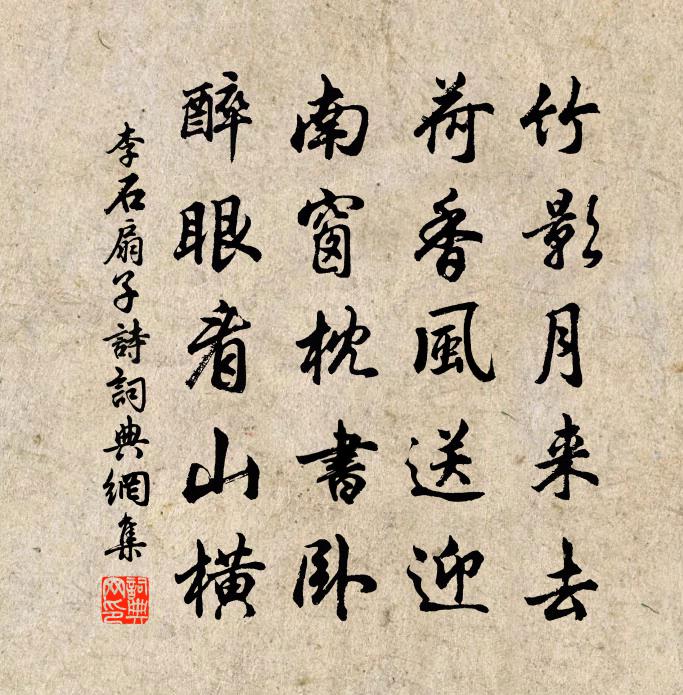 竹影月来去
荷香風送迎
南窗枕書卧
醉眼看山橫
李石扇子詩詞典網集
詞典網印